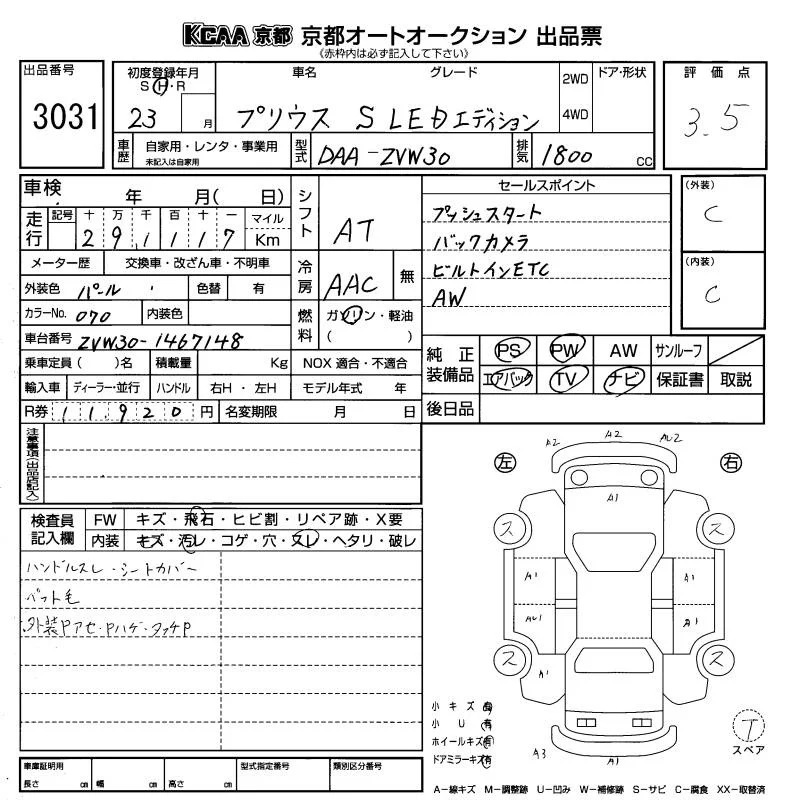 KCAA 京都 京都オートオークション 出品票
《赤枠内は必ず記入して下さい》
出品番号
3031
初度登録年月
S・H・R
23 月
車名 グレード
プリウス S LEDエディション
2WD
4WD
ドア・形状
評価点
3.5
車歴
自家用・レンタ・事業用
未記入は自家用
型式
DAA-ZVW30
排気
1800 cc
車検 年 月( 日)
走行
記号 十 万 千 百 十 一 マイル
29,1117 Km
メーター歴 交換車・改ざん車・不明車
外装色 パール 色替 有
カラーNo. 070 内装色
車台番号 ZVW30-1467148
乗車定員( )名 積載量 Kg
輸入車 ディーラー・並行 ハンドル 右H・左H
R券 11,920 円 名変期限 月 日
シフト
AT
冷房
AAC 無
燃料
ガソリン・軽油
( )
NOX 適合・不適合
モデル年式 年
セールスポイント
プッシュスタート
バックカメラ
ビルトインETC
AW
(外装)
C
(内装)
C
純正装備品
PS PW AW サンルーフ
エアバック TV ナビ 保証書 取説
後日品
注意事項(出品店記入)
検査員記入欄
FW キズ・飛石・ヒビ割・リペア跡・X要
内装 キズ・汚レ・コゲ・穴・スレ・ヘタリ・破レ
ハンドルスレ・シートカバー
ペット毛
外装Pアセ・Pハゲ・タッチP
左 右
A2 A2 AU2
A1
ス ス
A1 A1
AU1 A1
ス ス
A1
A3 A1
小キズ 有
小U 有
ホイールキズ 有
ドアミラーキズ 有
T
スペア
車庫証明用
長さ cm 幅 cm 高さ cm
型式指定番号
類別区分番号
A-線キズ M-調整跡 U-凹み W-補修跡 S-サビ C-腐食 XX-取替済